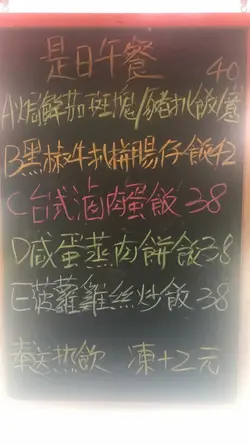 是日午餐
40
A焗鮮茄斑塊/豬扒飯/意
B黑椒牛扒拼腸仔飯42
C台式滷肉蛋飯38
D咸蛋蒸肉餅飯38
E菠蘿雞絲炒飯38
奉送热飲 凍+2元